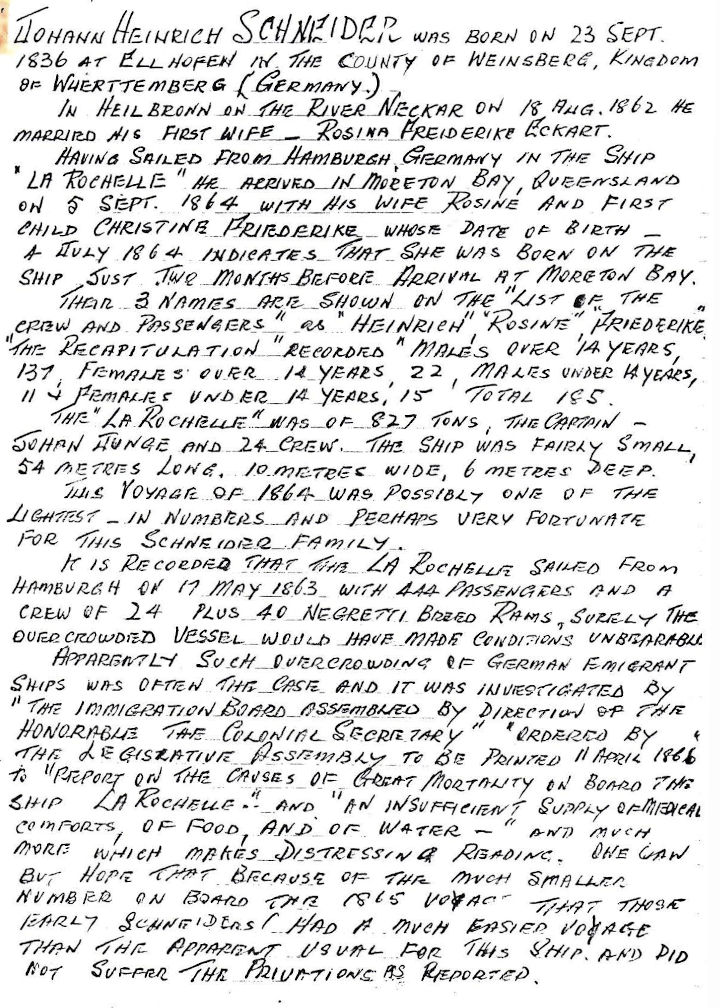 JOHANN HEINRICH SCHNEIDER WAS BORN ON 23 SEPT.
1836 AT ELLHOFEN IN THE COUNTY OF WEINSBERG, KINGDOM
OF WUERTTEMBERG (GERMANY)
IN HEILBRONN ON THE RIVER NECKAR ON 18 AUG. 1862 HE
MARRIED HIS FIRST WIFE – ROSINA FREIDERIKE ECKART.
HAVING SAILED FROM HAMBURGH GERMANY IN THE SHIP
"LA ROCHELLE" HE ARRIVED IN MORETON BAY, QUEENSLAND
ON 5 SEPT. 1864 WITH HIS WIFE ROSINE AND FIRST
CHILD CHRISTINE FRIEDERIKE WHOSE DATE OF BIRTH –
4 JULY 1864 INDICATES THAT SHE WAS BORN ON THE
SHIP JUST TWO MONTHS BEFORE ARRIVAL AT MORETON BAY.
THEIR 3 NAMES ARE SHOWN ON THE "LIST OF THE
CREW AND PASSENGERS" AS "HEINRICH", "ROSINE", "FRIEDERIKE"
"THE RECAPITULATION" RECORDED "MALES OVER 14 YEARS,
137, FEMALES OVER 14 YEARS 22, MALES UNDER 14 YEARS,
11 & FEMALES UNDER 14 YEARS, 15 TOTAL 185.
THE "LA ROCHELLE" WAS OF 827 TONS, THE CAPTAIN –
JOHAN JUNGE AND 24 CREW. THE SHIP WAS FAIRLY SMALL,
54 METRES LONG, 10 METRES WIDE, 6 METRES DEEP.
THIS VOYAGE OF 1864 WAS POSSIBLY ONE OF THE
LIGHTEST – IN NUMBERS AND PERHAPS VERY FORTUNATE
FOR THIS SCHNEIDER FAMILY.
IT IS RECORDED THAT THE LA ROCHELLE SAILED FROM
HAMBURGH ON 17 MAY 1863 WITH 444 PASSENGERS AND A
CREW OF 24 PLUS 40 NEGRETTI BREED RAMS, SURELY THE
OVERCROWDED VESSEL WOULD HAVE MADE CONDITIONS UNBEARABLE
APPARENTLY SUCH OVERCROWDING OF GERMAN EMIGRANT
SHIPS WAS OFTEN THE CASE AND IT WAS INVESTIGATED BY
"THE IMMIGRATION BOARD ASSEMBLED BY DIRECTION OF THE
HONORABLE THE COLONIAL SECRETARY" "ORDERED BY
THE LEGISRATIVE ASSEMBLY TO BE PRINTED 11 APRIL 1866"
TO "REPORT ON THE CAUSES OF GREAT MORTALITY ON BOARD THE
SHIP LA ROCHELLE." AND "AN INSUFFICIENT SUPPLY OF MEDICAL
COMFORTS, OF FOOD, AND OF WATER –" AND MUCH
MORE WHICH MAKES DISTRESSING READING. ONE CAN
BUT HOPE THAT BECAUSE OF THE MUCH SMALLER
NUMBER ON BOARD THE 1865 VOYAGE THAT THOSE
EARLY SCHNEIDERS HAD A MUCH EASIER VOYAGE
THAN THE APPARENT USUAL FOR THIS SHIP AND DID
NOT SUFFER THE PRIVATIONS AS REPORTED.